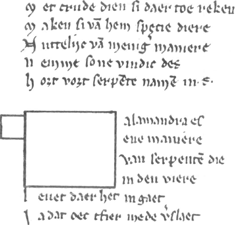 M et crude dien si daer toe reken
M aken si vā hem spetie diere
N uttelijc vā menig maniere
N emme so ne vindic des
H ort vort serpēte namē in .s.
alamandra es
ene maniere
van serpentē die
in den viere
L euet daer het in gaet
I a dat oec tfier mede vslaet